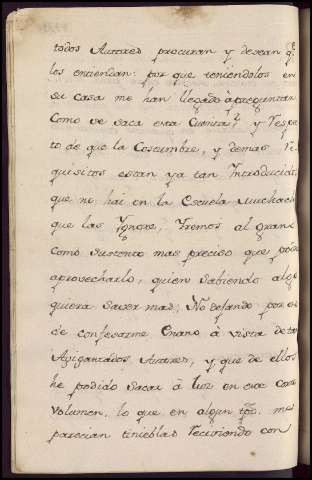 todos Autores procuran y desean q.e
los entiendan: por que teniendolos en
su casa me han llegado à preguntar
Como se saca esta Cuenta? y Respe
to de que la Costumbre, y demas Re
quisitos estan ya tan Introducido
que no hai en la Escuela Muchach
que las Ygnore, Yremos al grano
como sustento mas preciso que pod
aprovecharlo, quien sabiendo algo
quiera saver mas; No dejando por es
de confesarme Enano à vista de tan
Agigantados Autores, y que de ellos
he podido sacar à luz en este corto
volumen, lo que en algun tpo. me
parecian tinieblas Reciviendo con